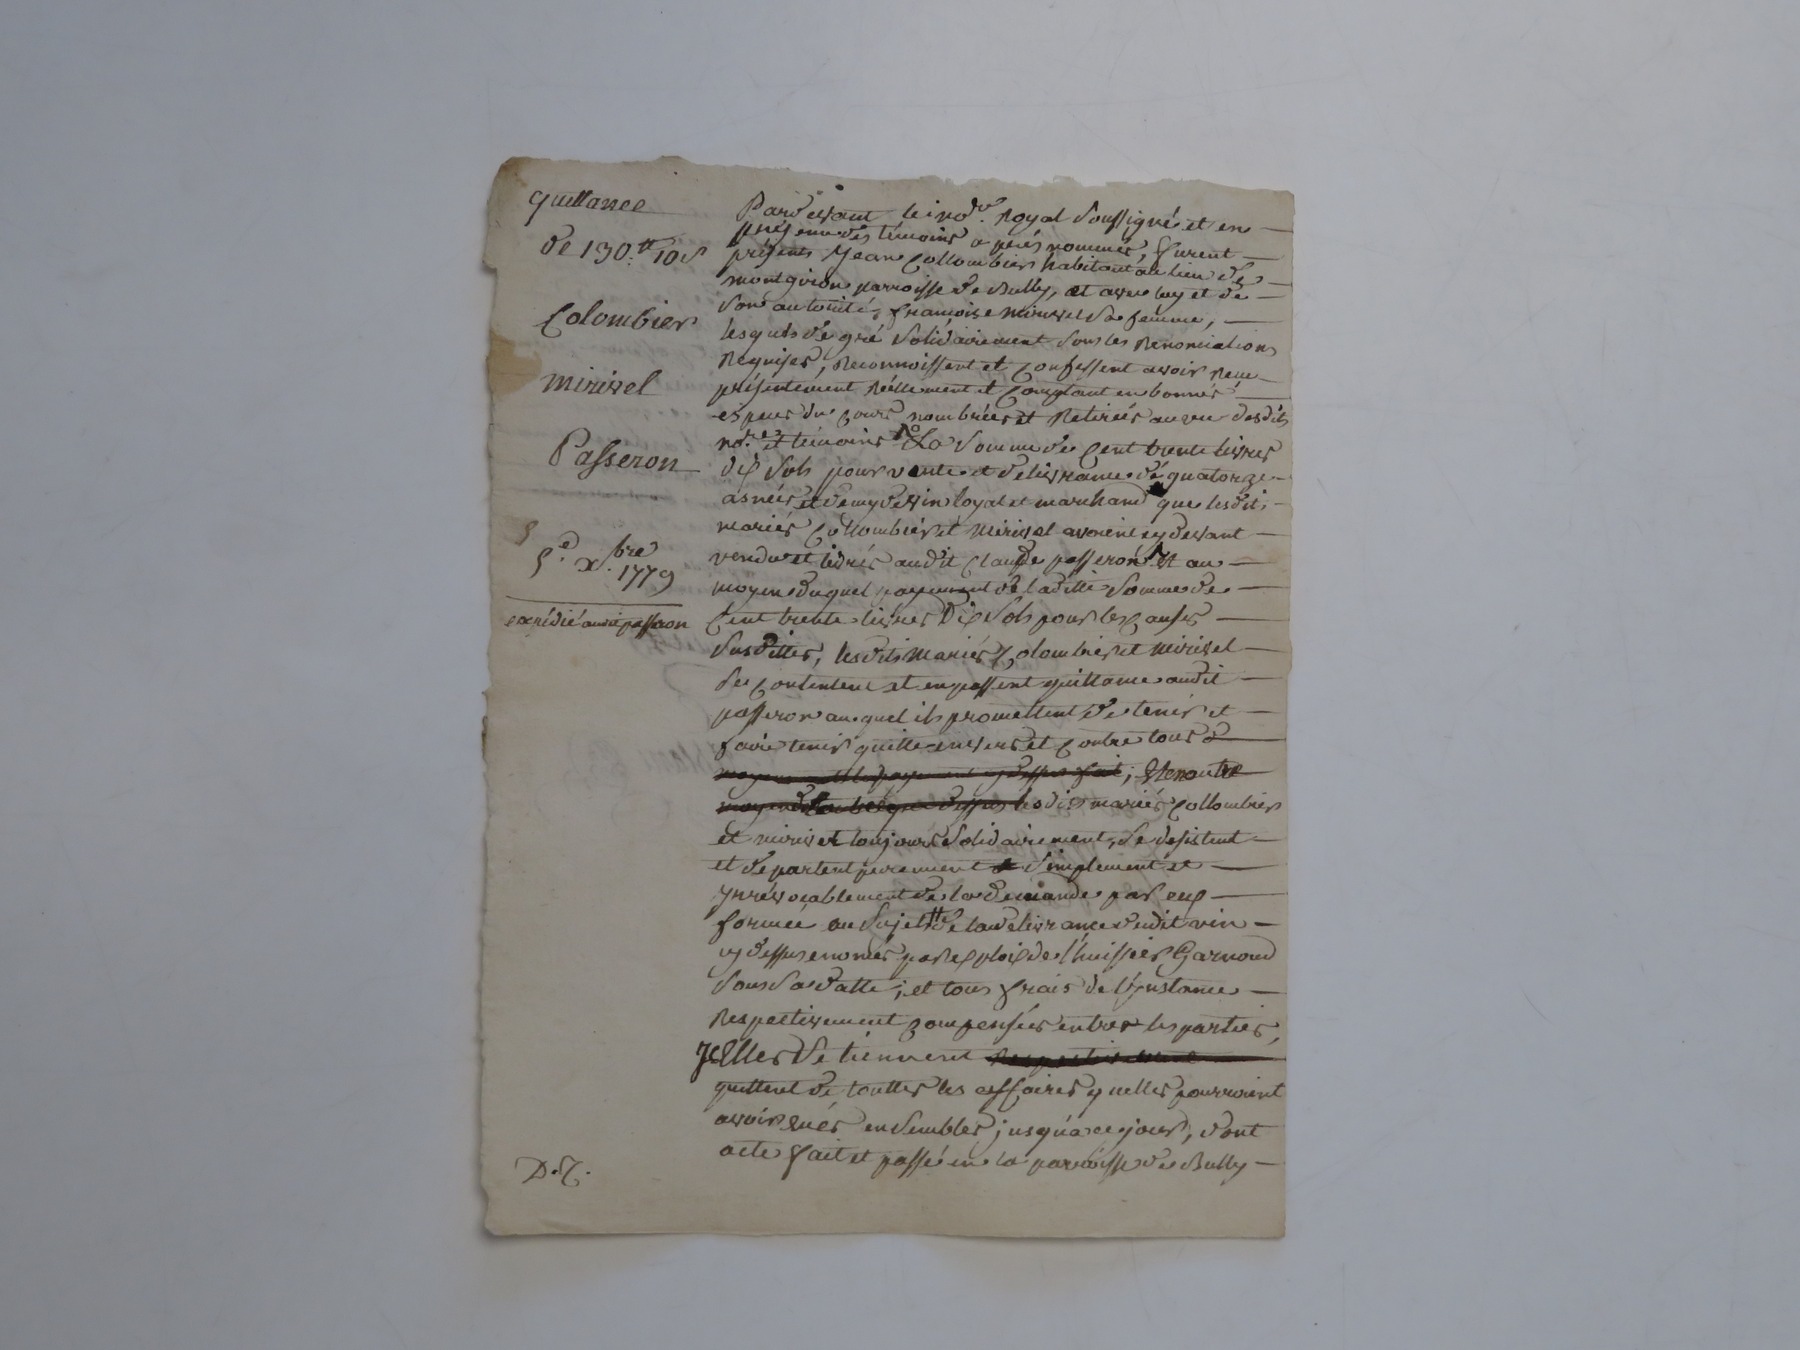 quittance
de 130.tt 10s
Colombier
mirivel
Passeron
5e xbre
1779
expédié audit passeron
Pardevant le no.re Royal soussigné et en
présence des témoins aprés nommés, furent
présents Jean Collombier habitant au lieu de
montgiron parroisse de Bully, et avec luy et de
son autorité, françoise mirivel sa femme,
lesquels de gré solidairement sous les Renonciations
Requises, Reconnoissent et Confessent avoir Receu
présentement Réellement et Comptant en bonnes
espèces du Cours nombrées et Retirées au veu desdits
no.re et témoins La somme de Cent trente livres
dix sols pour vente et délivrance de quatorze
asnées et demy de vin loyal et marchand que lesdits
mariés Collombier et Mirivel avoient cy devant
vendu et livrés audit Claude passeron Et au
moyen duquel payement de laditte somme de
Cent trente livres Dix sols pour les Causes
susdittes, lesdits Mariés Colombier et Mirivel
se Contentent et en passent quittance audit
passeron auquel ils promettent de tenir et
faire tenir quitte envers et Contre tous
moyennant le payement cy dessus fait; Et en outre
lesdits mariés Collombier
et mirivel toujours solidairement, se desistent
et départent purement simplement et
yrrévocablement de la demande par eux
formée au sujet de la délivrance dudit vin
cy dessus enoncés par exploix de l'huissier Garnoud
sous sa datte; et tous frais de l'Instance
Respectivement Compensés entre les parties,
JcElles se tiennent Respectivement
quittent de touttes les affaires quelles pourroient
avoir Eües ensembles jusqu'a ce jour, dont
acte fait et passé en la parroisse de Bully
D.C.